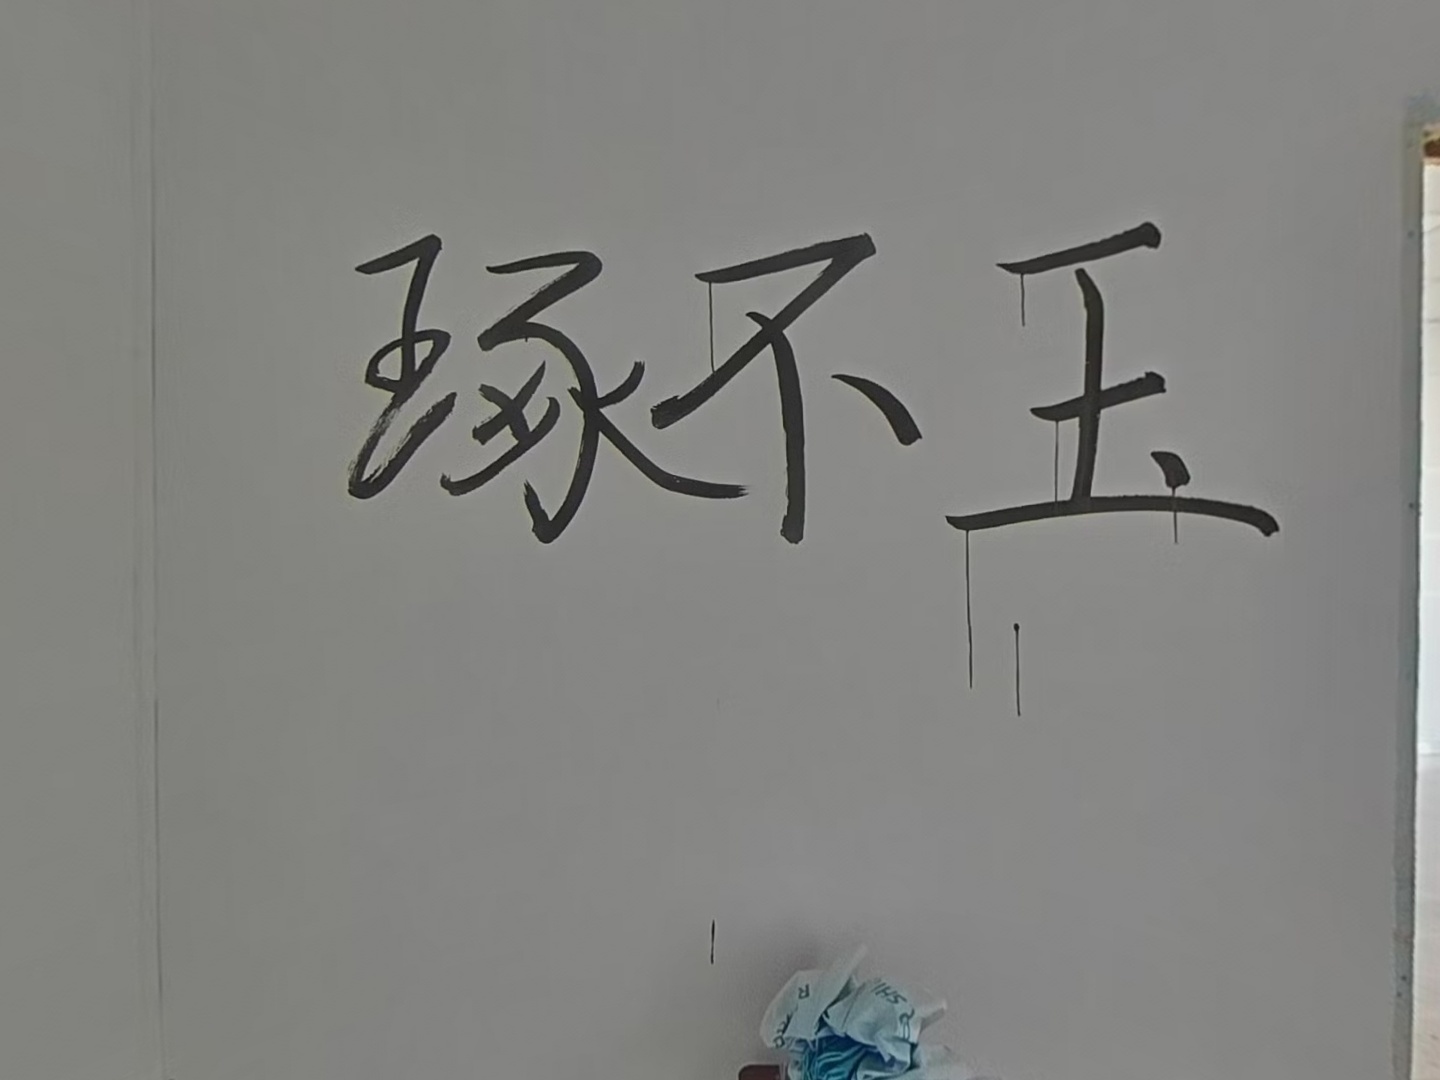 琢不玉